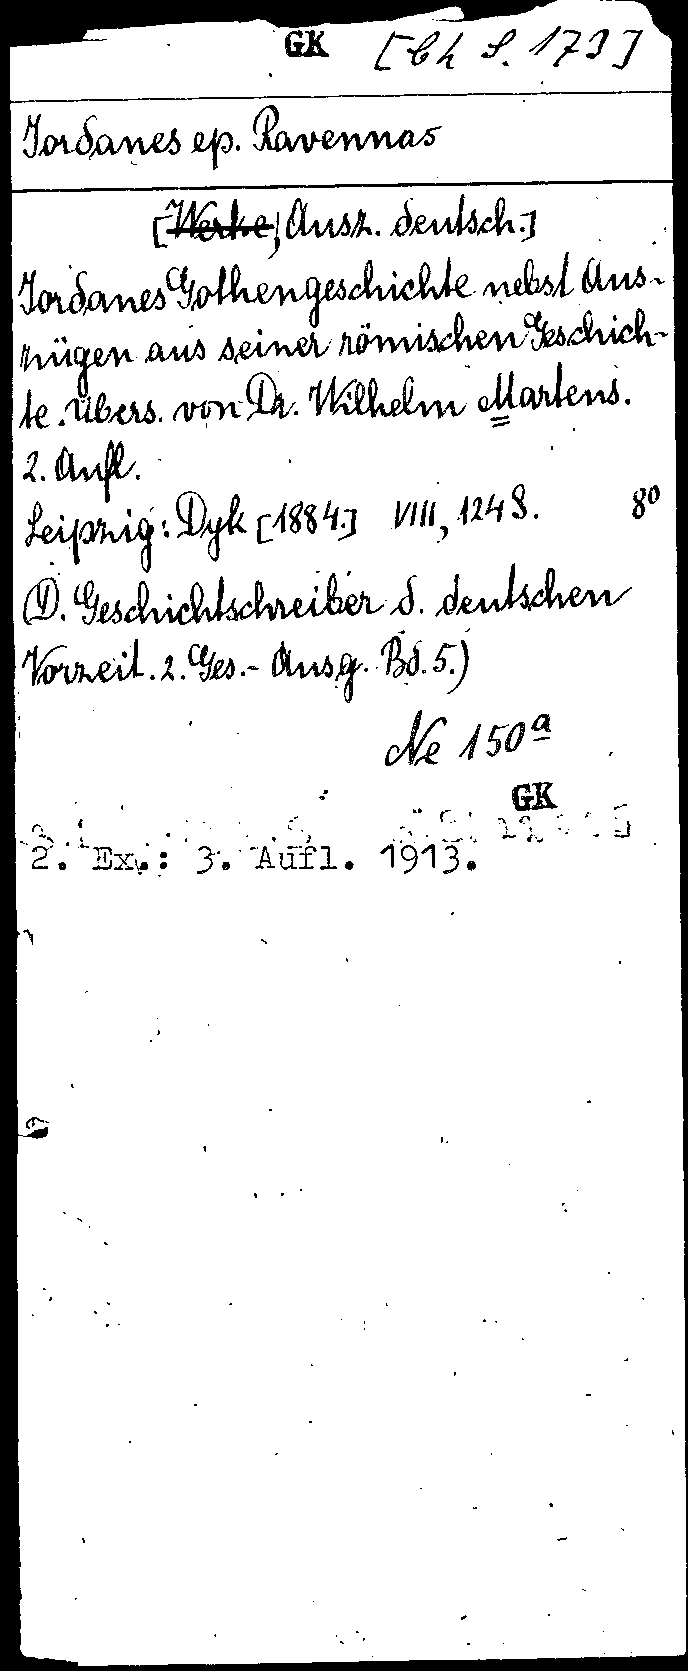 GK [Ch S. 173]
Jordanes ep. Ravennas
[Werke, Ausz. deutsch.]
Jordanes Gothengeschichte nebst Aus-
zügen aus seiner römischen Geschich-
te. Übers. von Dr. Wilhelm Martens.
2. Aufl.
Leipzig: Dyk [1884.] VIIII, 124 S. 8º
(D. Geschichtschreiber d. deutschen
Vorzeit. 2. Ges.-Ausg. Bd. 5.)
Ne 150ª
GK
2. Ex.: 3. Aufl. 1913.